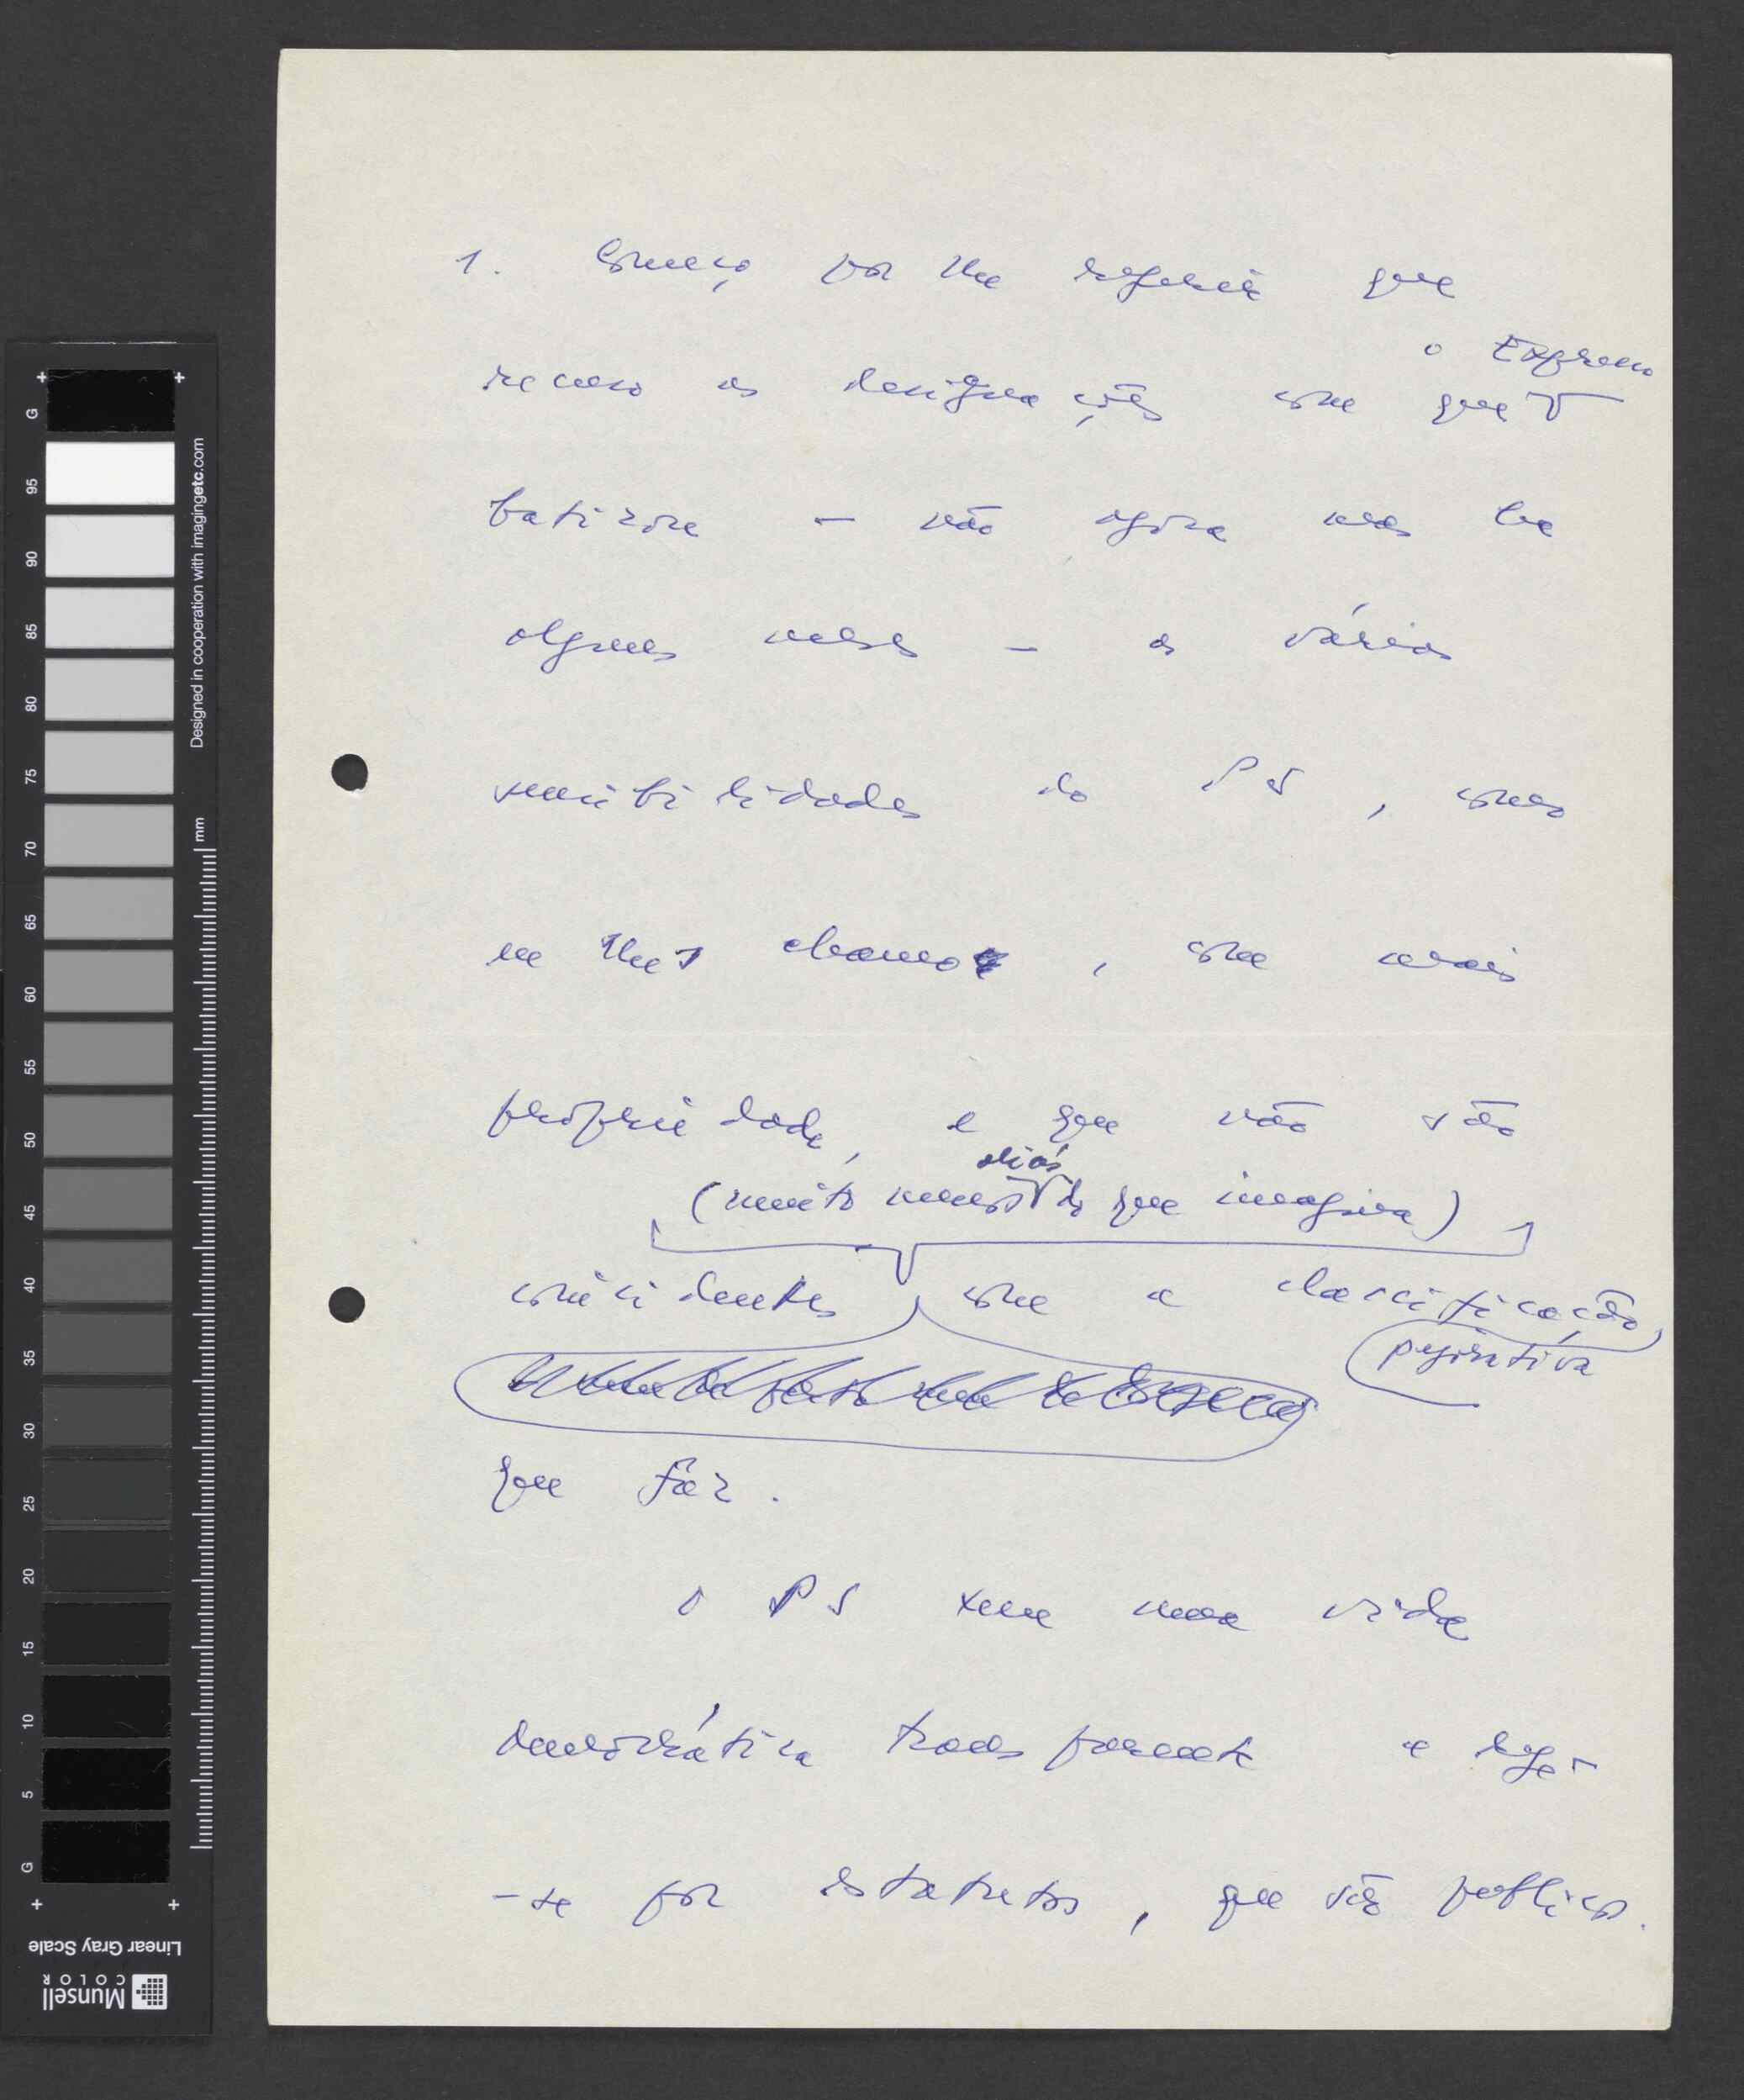 1. Começo por lhe referir que
recuso as designações com que
o Expresso
batizou – não agora mas há
alguns meses – as várias
sensibilidades do PS, como
eu lhes chamo, com mais
propriedade, e que não são
aliás
(muito menos do que imagina)
coincidentes com a classificação
pejorativa
que faz.
O PS tem uma vida
democrática transparente e rege-
-se por estatutos, que são públicos.
Designed in cooperation with imagingetc.com
mm
G 95 90 85 80 75 70 65 60 55 50 45 40 35 30 25 20 15 10 5 G
Linear Gray Scale
Munsell
COLOR